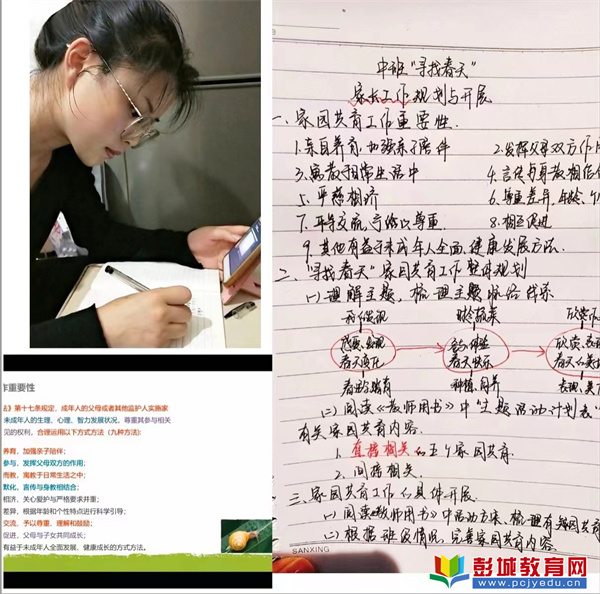 作重要性
法》第十七条规定，成年人的父母或者其他监护人实施家
未成年人的生理、心理、智力发展状况，尊重其参与相关
见的权利，合理运用以下方式方法（九种方法）：
养育，加强亲子陪伴；
参与，发挥父母双方的作用；
而教，寓教于日常生活之中；
默化，言传与身教相结合；
相济，关心爱护与严格要求并重；
差异，根据年龄和个性特点进行科学引导；
交流，予以尊重、理解和鼓励；
促进，父母与子女共同成长；
有益于未成年人全面发展、健康成长的方式方法。
中班“寻找春天”
家长工作规划与开展
一、家园共育工作重要性
1.亲自养育，加强亲子陪伴
2.发挥父母双方作用
3.寓教于日常生活中
4.言传与身教相结合
5.严慈相济
6.尊重差异，年龄、个
7.平等交流，予以尊重
8.相互促进
9.其他有益于未成年人全面、健康发展方法.
二、“寻找春天”家园共育工作整体规划
(一)理解主题，梳理主题脉络体系
春天变化
春天快乐
欣赏、表
春天的美
种植、饲养
(二)阅读《教师用书》中“主题活动计划表”
有关家园共育内容.
1.直接相关的五个家园共育
2.间接相关.
三、家园共育工作的具体开展
(一)阅读《教师用书》中活动方案，梳理有关家园共育
(二)根据班级情况，完善家园共育内容.
SANXING
彭城教育网
www.pcjyedu.cn